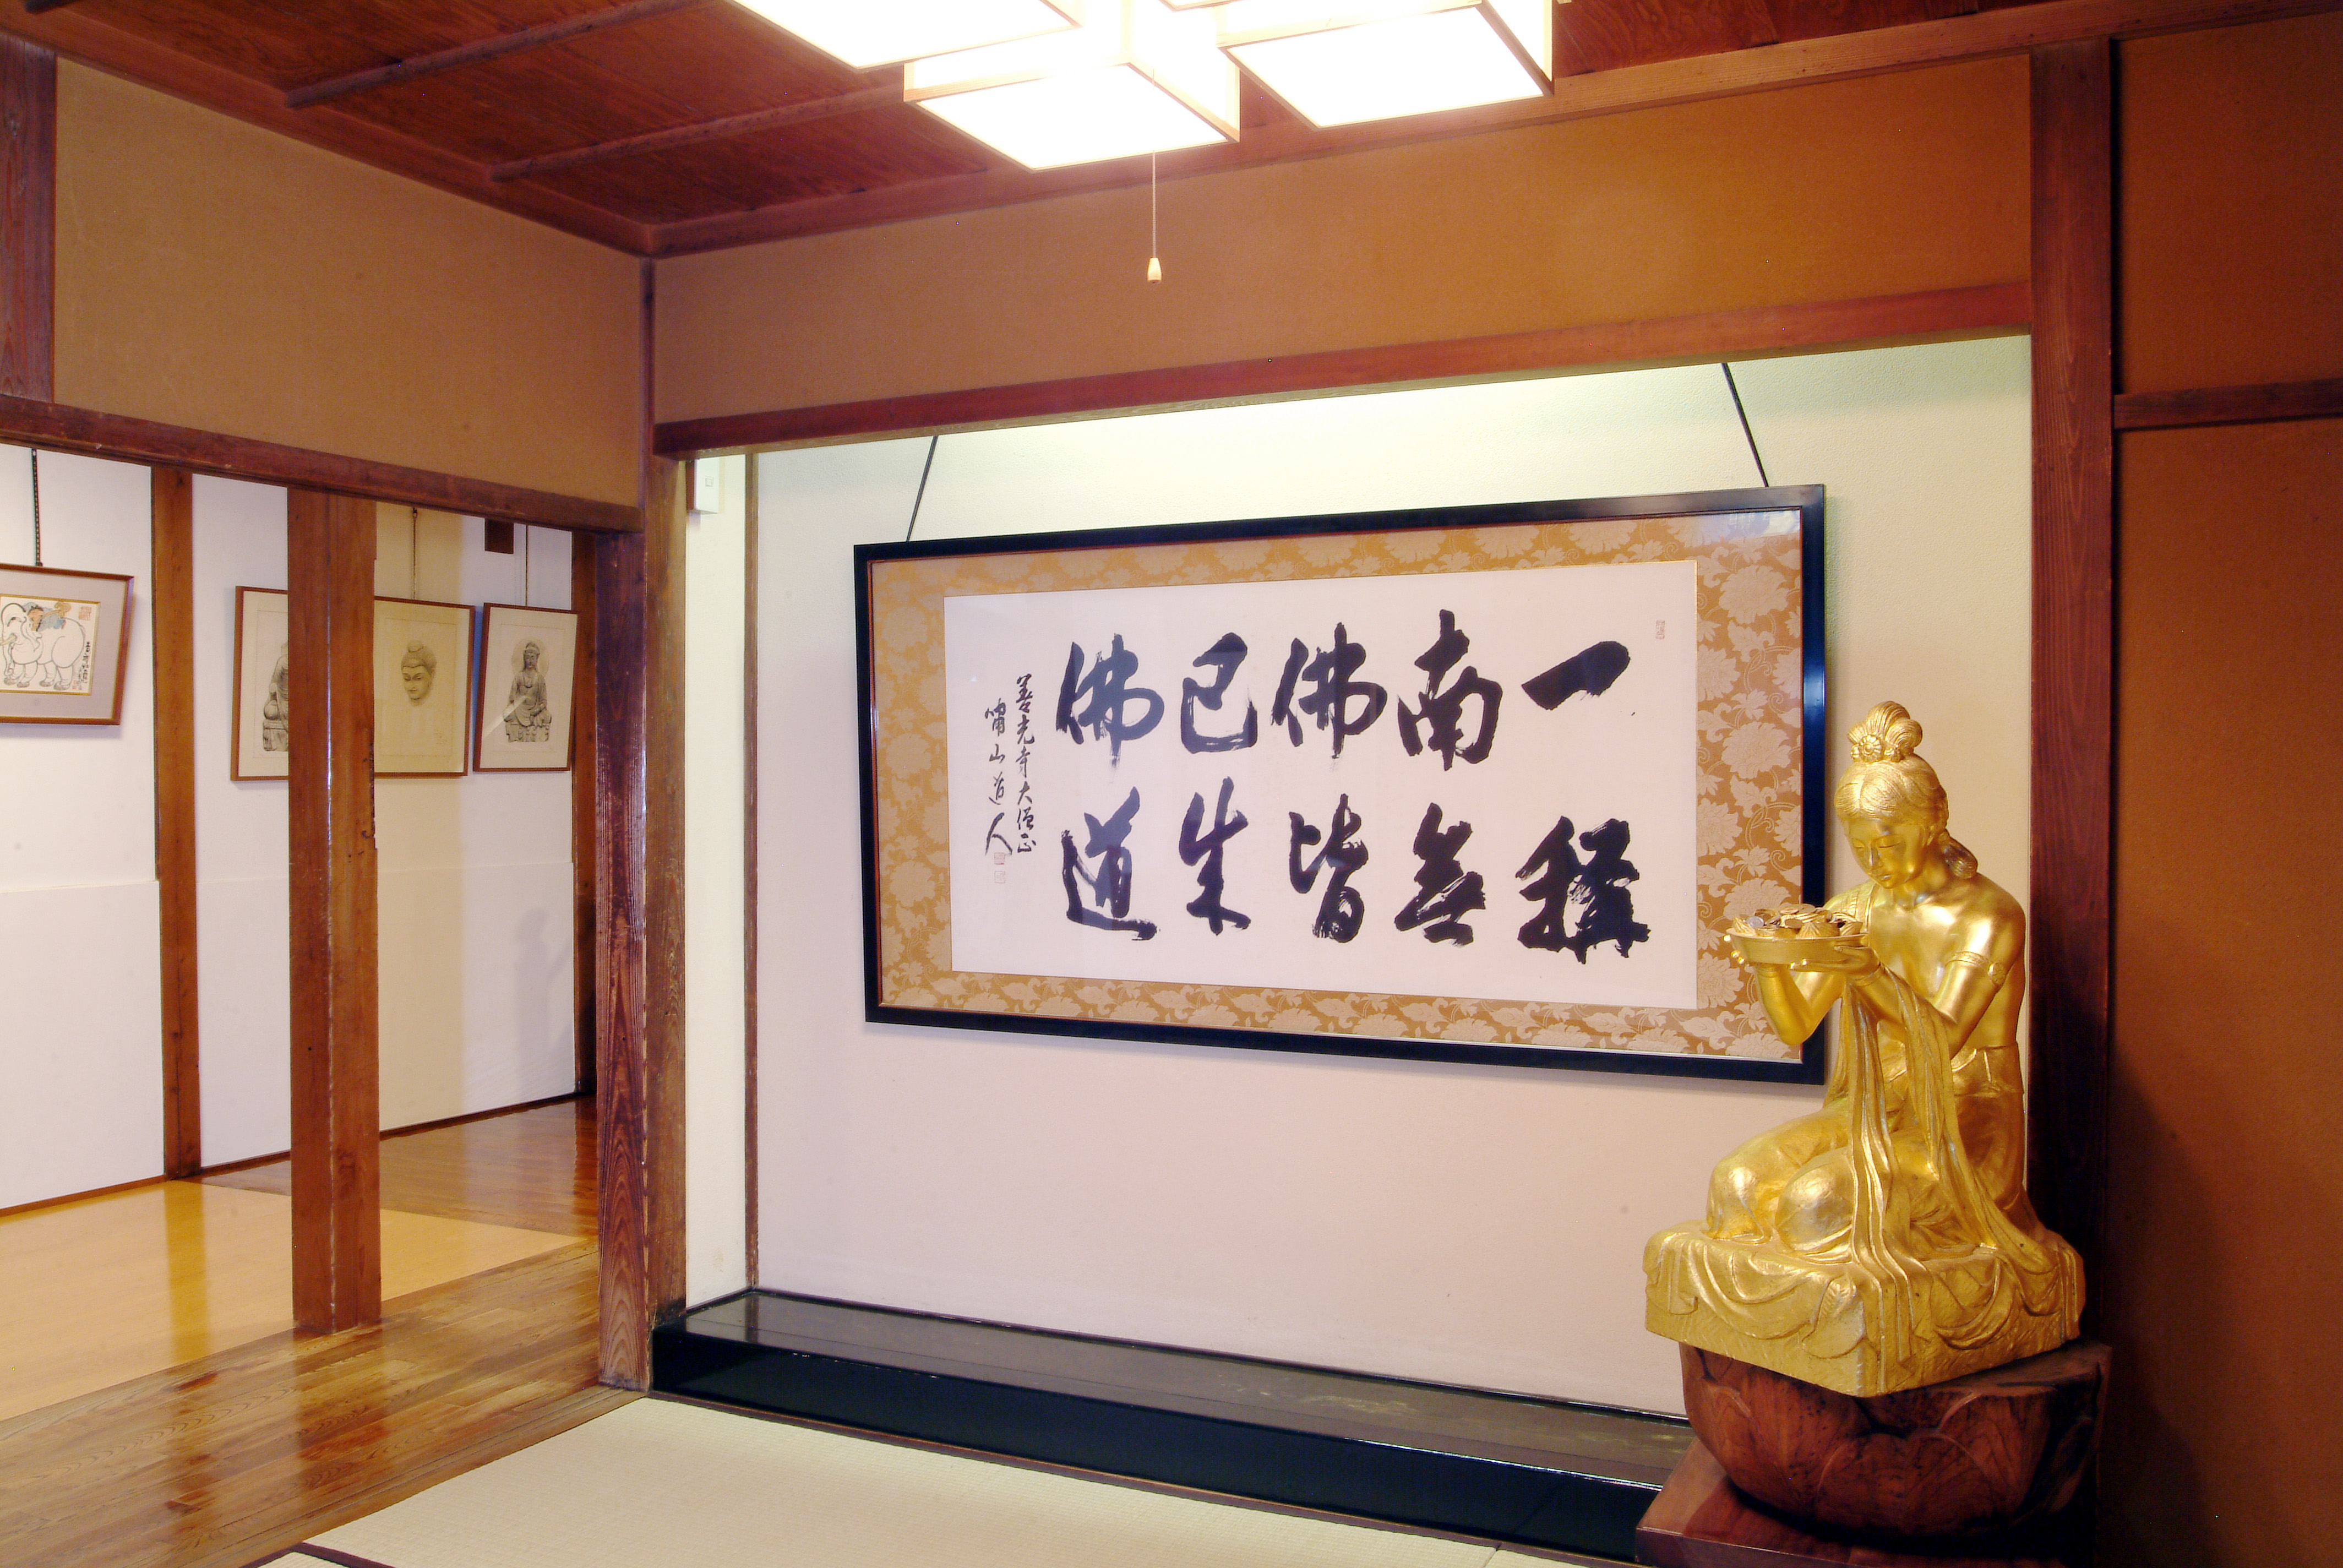 一稱
南無
佛皆
已成
佛道
善光寺大僧正
嘯山道人